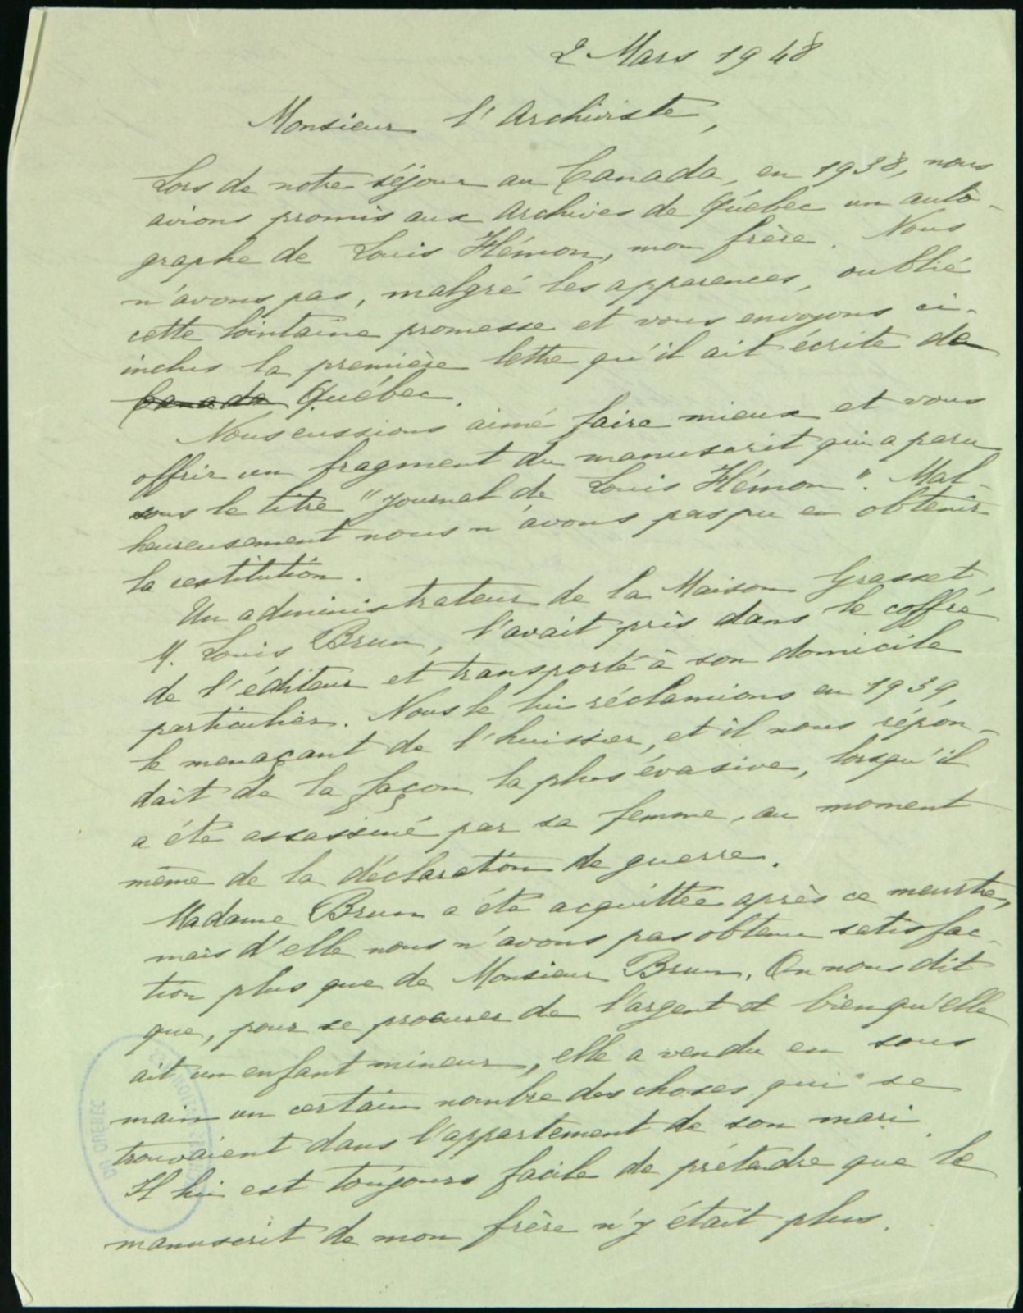 2 Mars 1948
Monsieur l'Archiviste,
Lors de notre séjour au Canada, en 1938, nous
avions promis aux Archives de Québec un auto-
graphe de Louis Hémon, mon frère. Nous
n'avons pas, malgré les apparences, oublié
cette lointaine promesse et vous envoyons ci-
inclus la première lettre qu'il ait écrite de
Canada Québec.
Nous eussions aimé faire mieux et vous
offrir un fragment du manuscrit qui a paru
sous le titre "Journal de Louis Hémon". Mal-
heureusement nous n'avons pas pu en obtenir
la restitution.
Un administrateur de la Maison Grasset,
M. Louis Brun, l'avait pris dans le coffre
de l'éditeur et transporté à son domicile
particulier. Nous le lui réclamions en 1939,
le menaçant de l'huissier, et il nous répon-
dait de la façon la plus évasive, lorsqu'il
a été assassiné par sa femme, au moment
même de la déclaration de guerre.
Madame Brun a été acquittée après ce meurtre,
mais d'elle nous n'avons pas obtenu satisfac-
tion plus que de Monsieur Brun. On nous dit
que, pour se procurer de l'argent et bien qu'elle
ait un enfant mineur, elle a vendu en sous
main un certain nombre des choses qui se
trouvaient dans l'appartement de son mari.
Il lui est toujours facile de prétendre que le
manuscrit de mon frère n'y était plus.
DU QUÉBEC